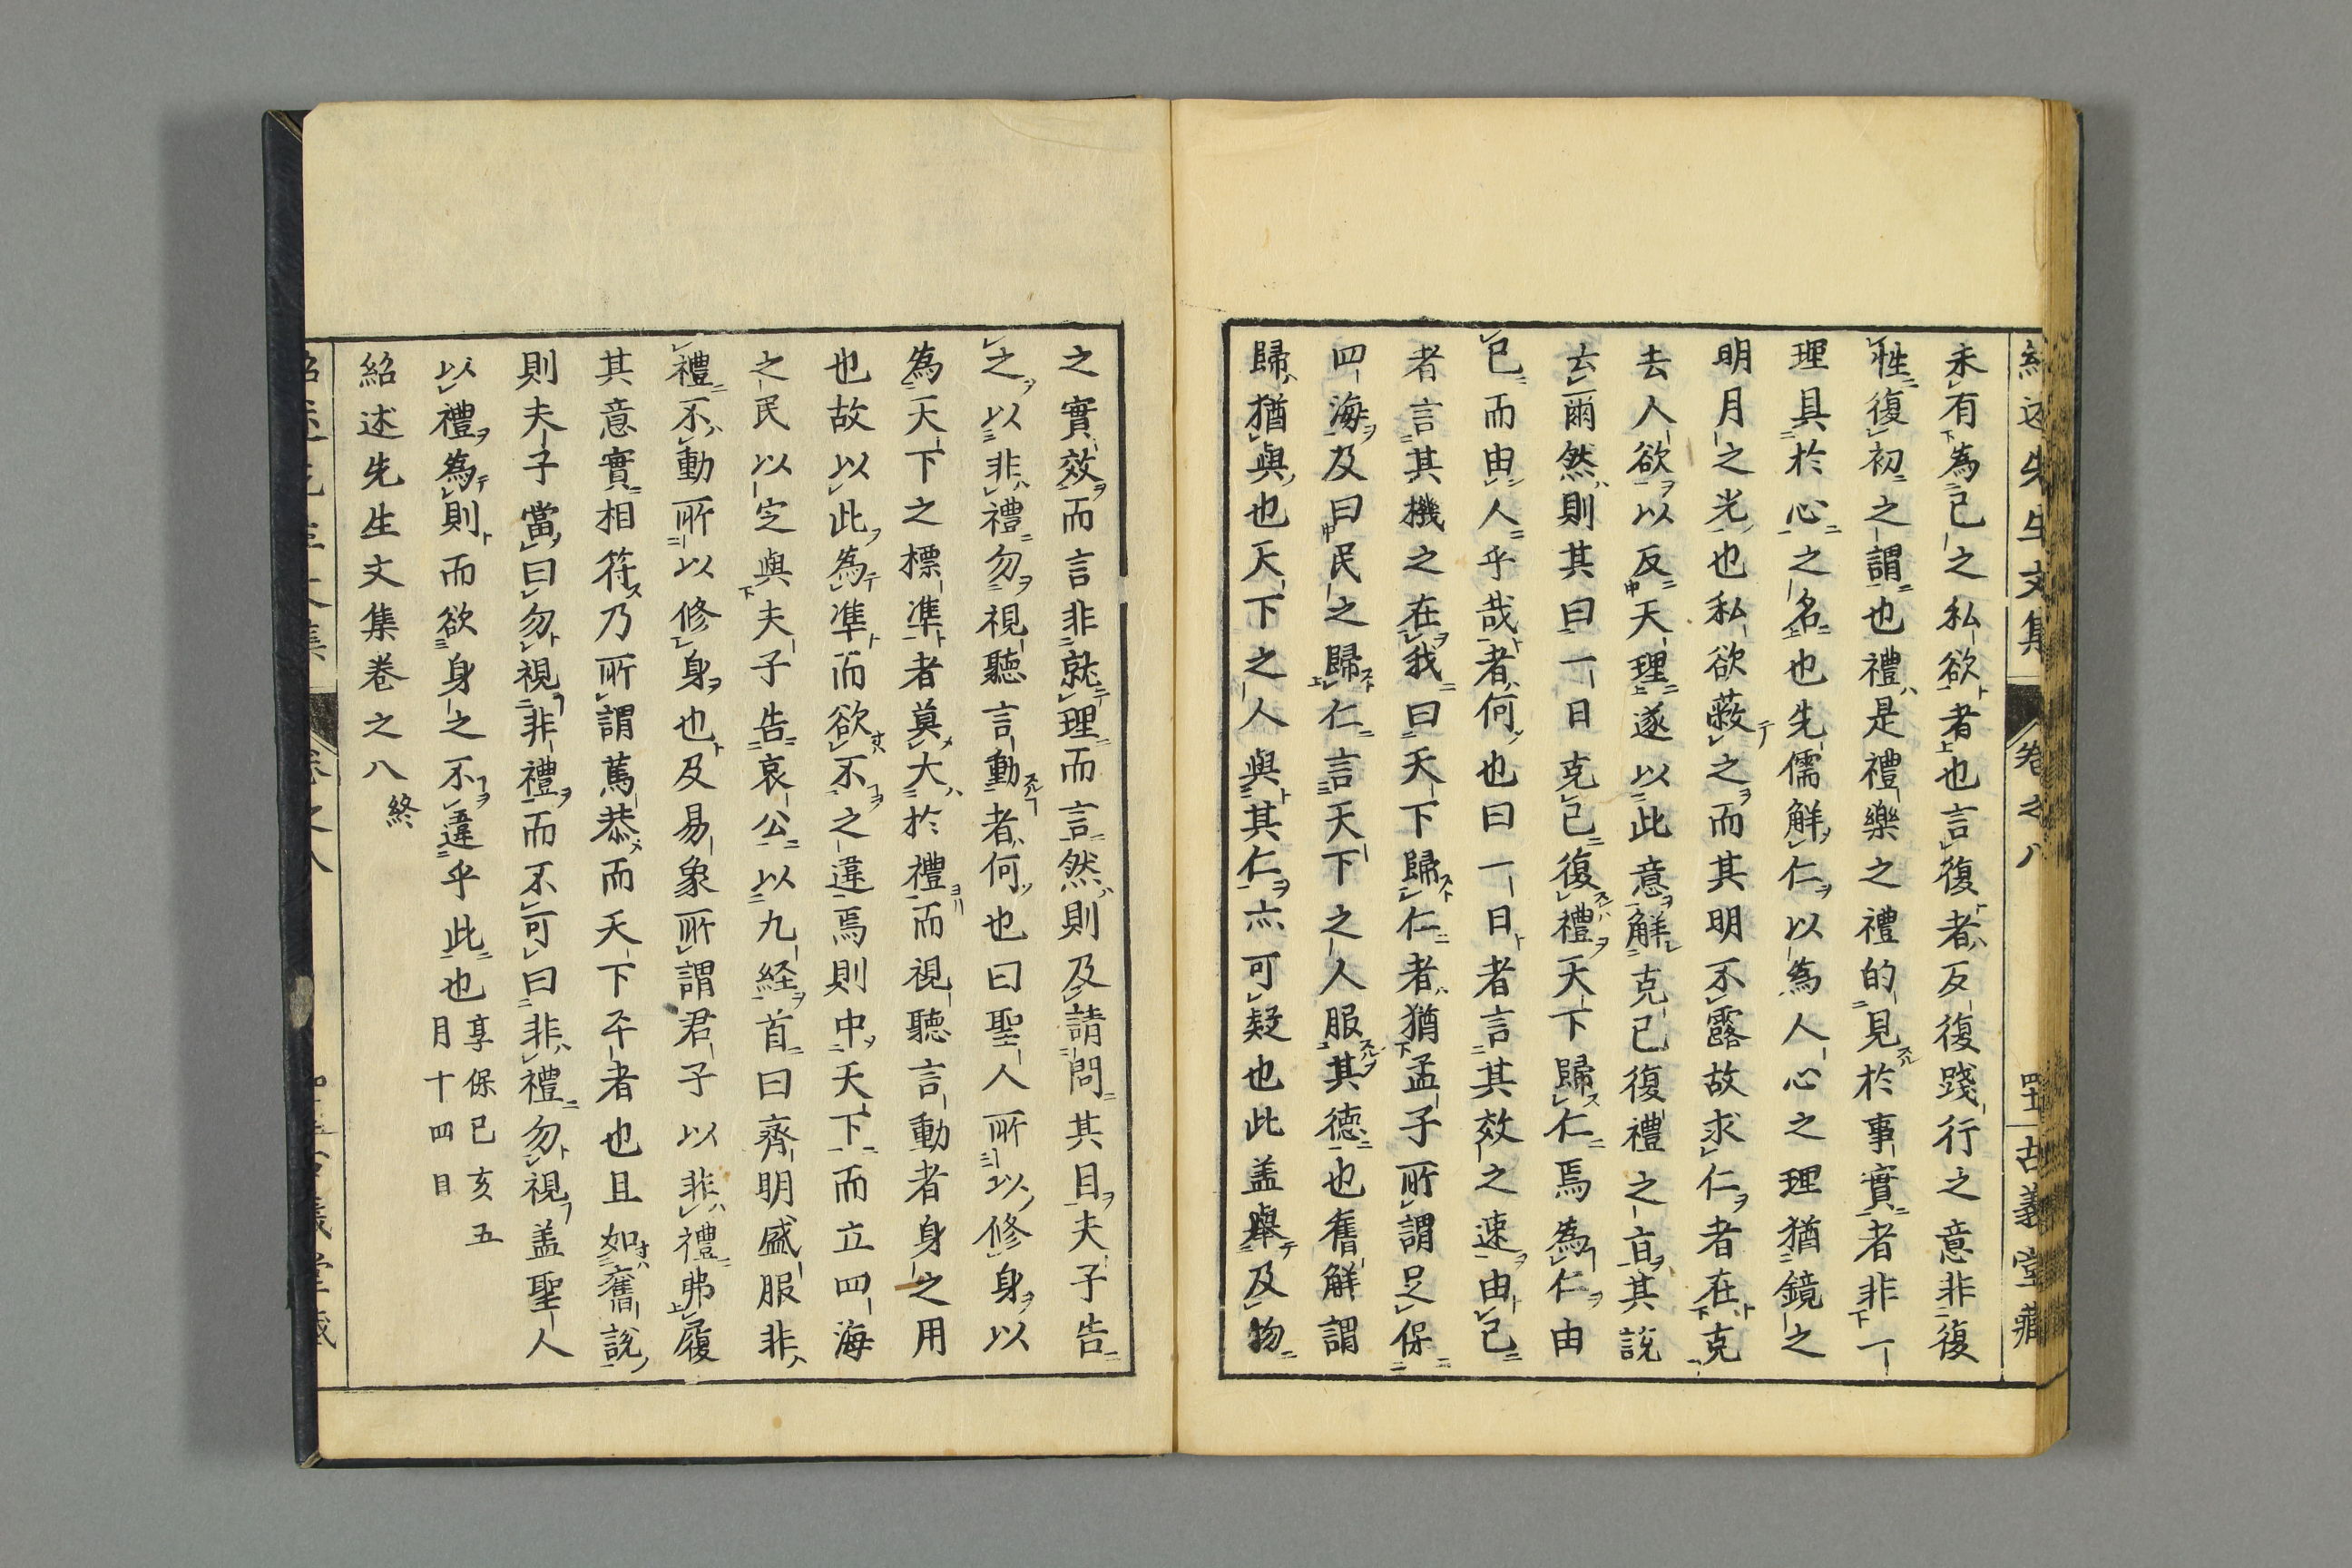 紹述先生文集 卷之八 古義堂藏
未有為己之私欲者也言復者反復踐行之意非復
性復初之謂也禮是禮樂之禮的見於事實者非一
理具於心之名也先儒解仁以為人心之理猶鏡之
明月之光也私欲蔽之而其明不露故求仁者在克
去人欲以反天理遂以此意解克己復禮之言其說
云爾然則其曰一日克己復禮天下歸仁焉為仁由
己而由人乎哉者何也曰一日者言其效之速由己
者言其機之在我曰天下歸仁者猶孟子所謂足保
四海及曰民之歸仁言天下之人服其德也舊解謂
歸猶與也天下之人與其仁亦可疑也此盖舉及物
之實效而言非就理而言然則及請問其目夫子告
之以非禮勿視聽言動者何也曰聖人所以修身以
為天下之標準者莫大於禮而視聽言動者身之用
也故以此為準而欲不之違焉則中天下而立四海
之民以定與夫子告哀公以九経首曰齊明盛服非
禮不動所以修身也及易象所謂君子以非禮弗履
其意實相符乃所謂篤恭而天下平者也且如舊說
則夫子當曰勿視非禮而不可曰非禮勿視盖聖人
以禮為則而欲身之不違乎此也 享保己亥五
月十四日
紹述先生文集卷之八 終